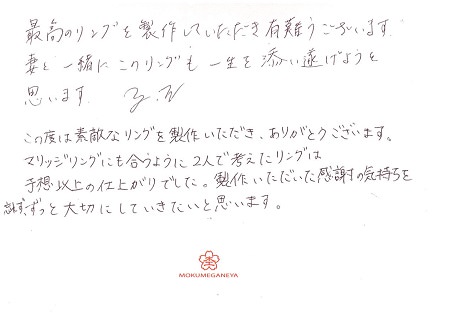 最高のリングを製作していただき有難うございます。
妻と一緒にこのリングも一生を添い遂げようと
思います。
この度は素敵なリングを製作いただき、ありがとうございます。
マリッジリングにも合うように2人で考えたリングは
予想以上の仕上がりでした。製作いただいた感謝の気持ちを
忘れず、ずっと大切にしていきたいと思います。
MOKUMEGANEYA